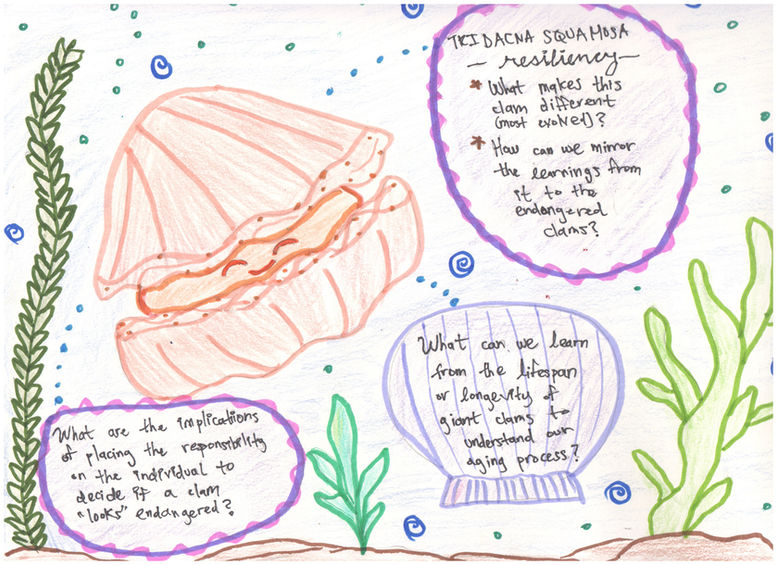 TRIDACNA SQUAMOSA
— resiliency —
* What makes this
clam different
(most evolved)?
* How can we mirror
the learnings from
it to the
endangered
clams?
What can we learn
from the lifespan
or longevity of
giant clams to
understand our
aging process?
What are the implications
of placing the responsibility
on the individual to
decide if a clam
"looks" endangered?